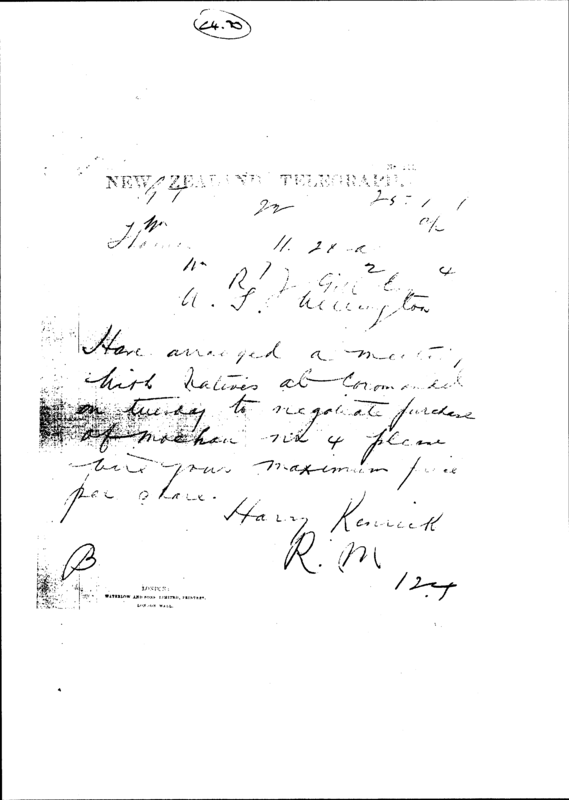 C4.70
NEW ZEALAND TELEGRAPH.
11. 28 a
Wellington
Have arranged a meeting
with Natives at Coromandel
on tuesday to negotiate purchase
of moehau no 4 please
wire your maximum price
per share.
Harry Kenrick
R. M
B
124
LONDON:
WATERLOW AND SONS LIMITED, PRINTERS,
LONDON WALL.